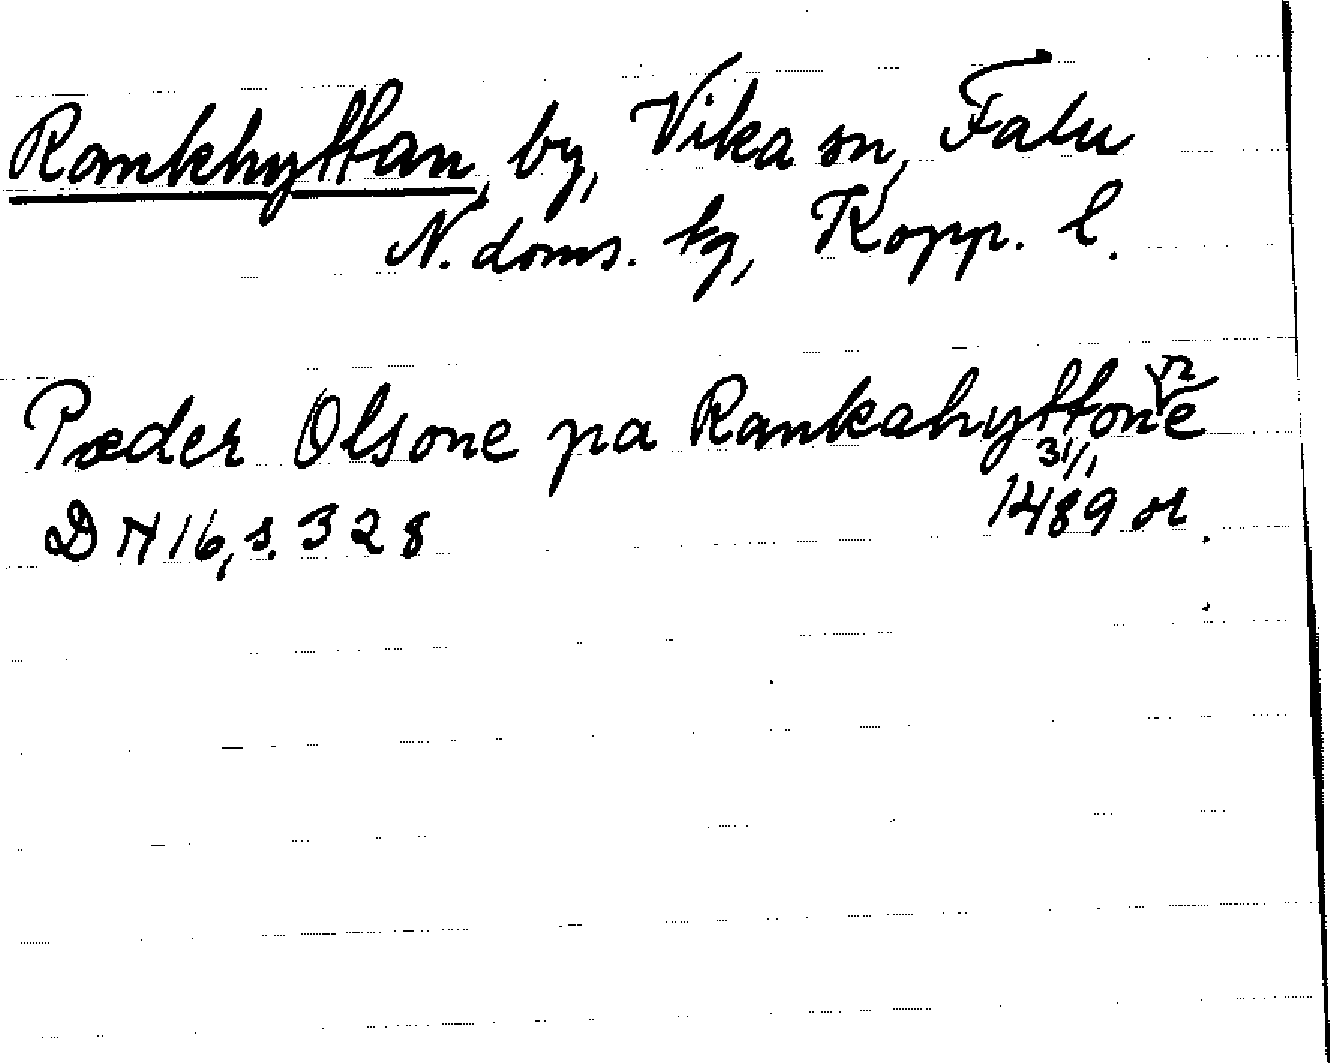 Rankhyttan, by, Vika sn, Falu
N. doms. tg, Kopp. l.
Pæder Olsone pa Rankahyttonne
31/1
DN 16, s. 328 1489 or